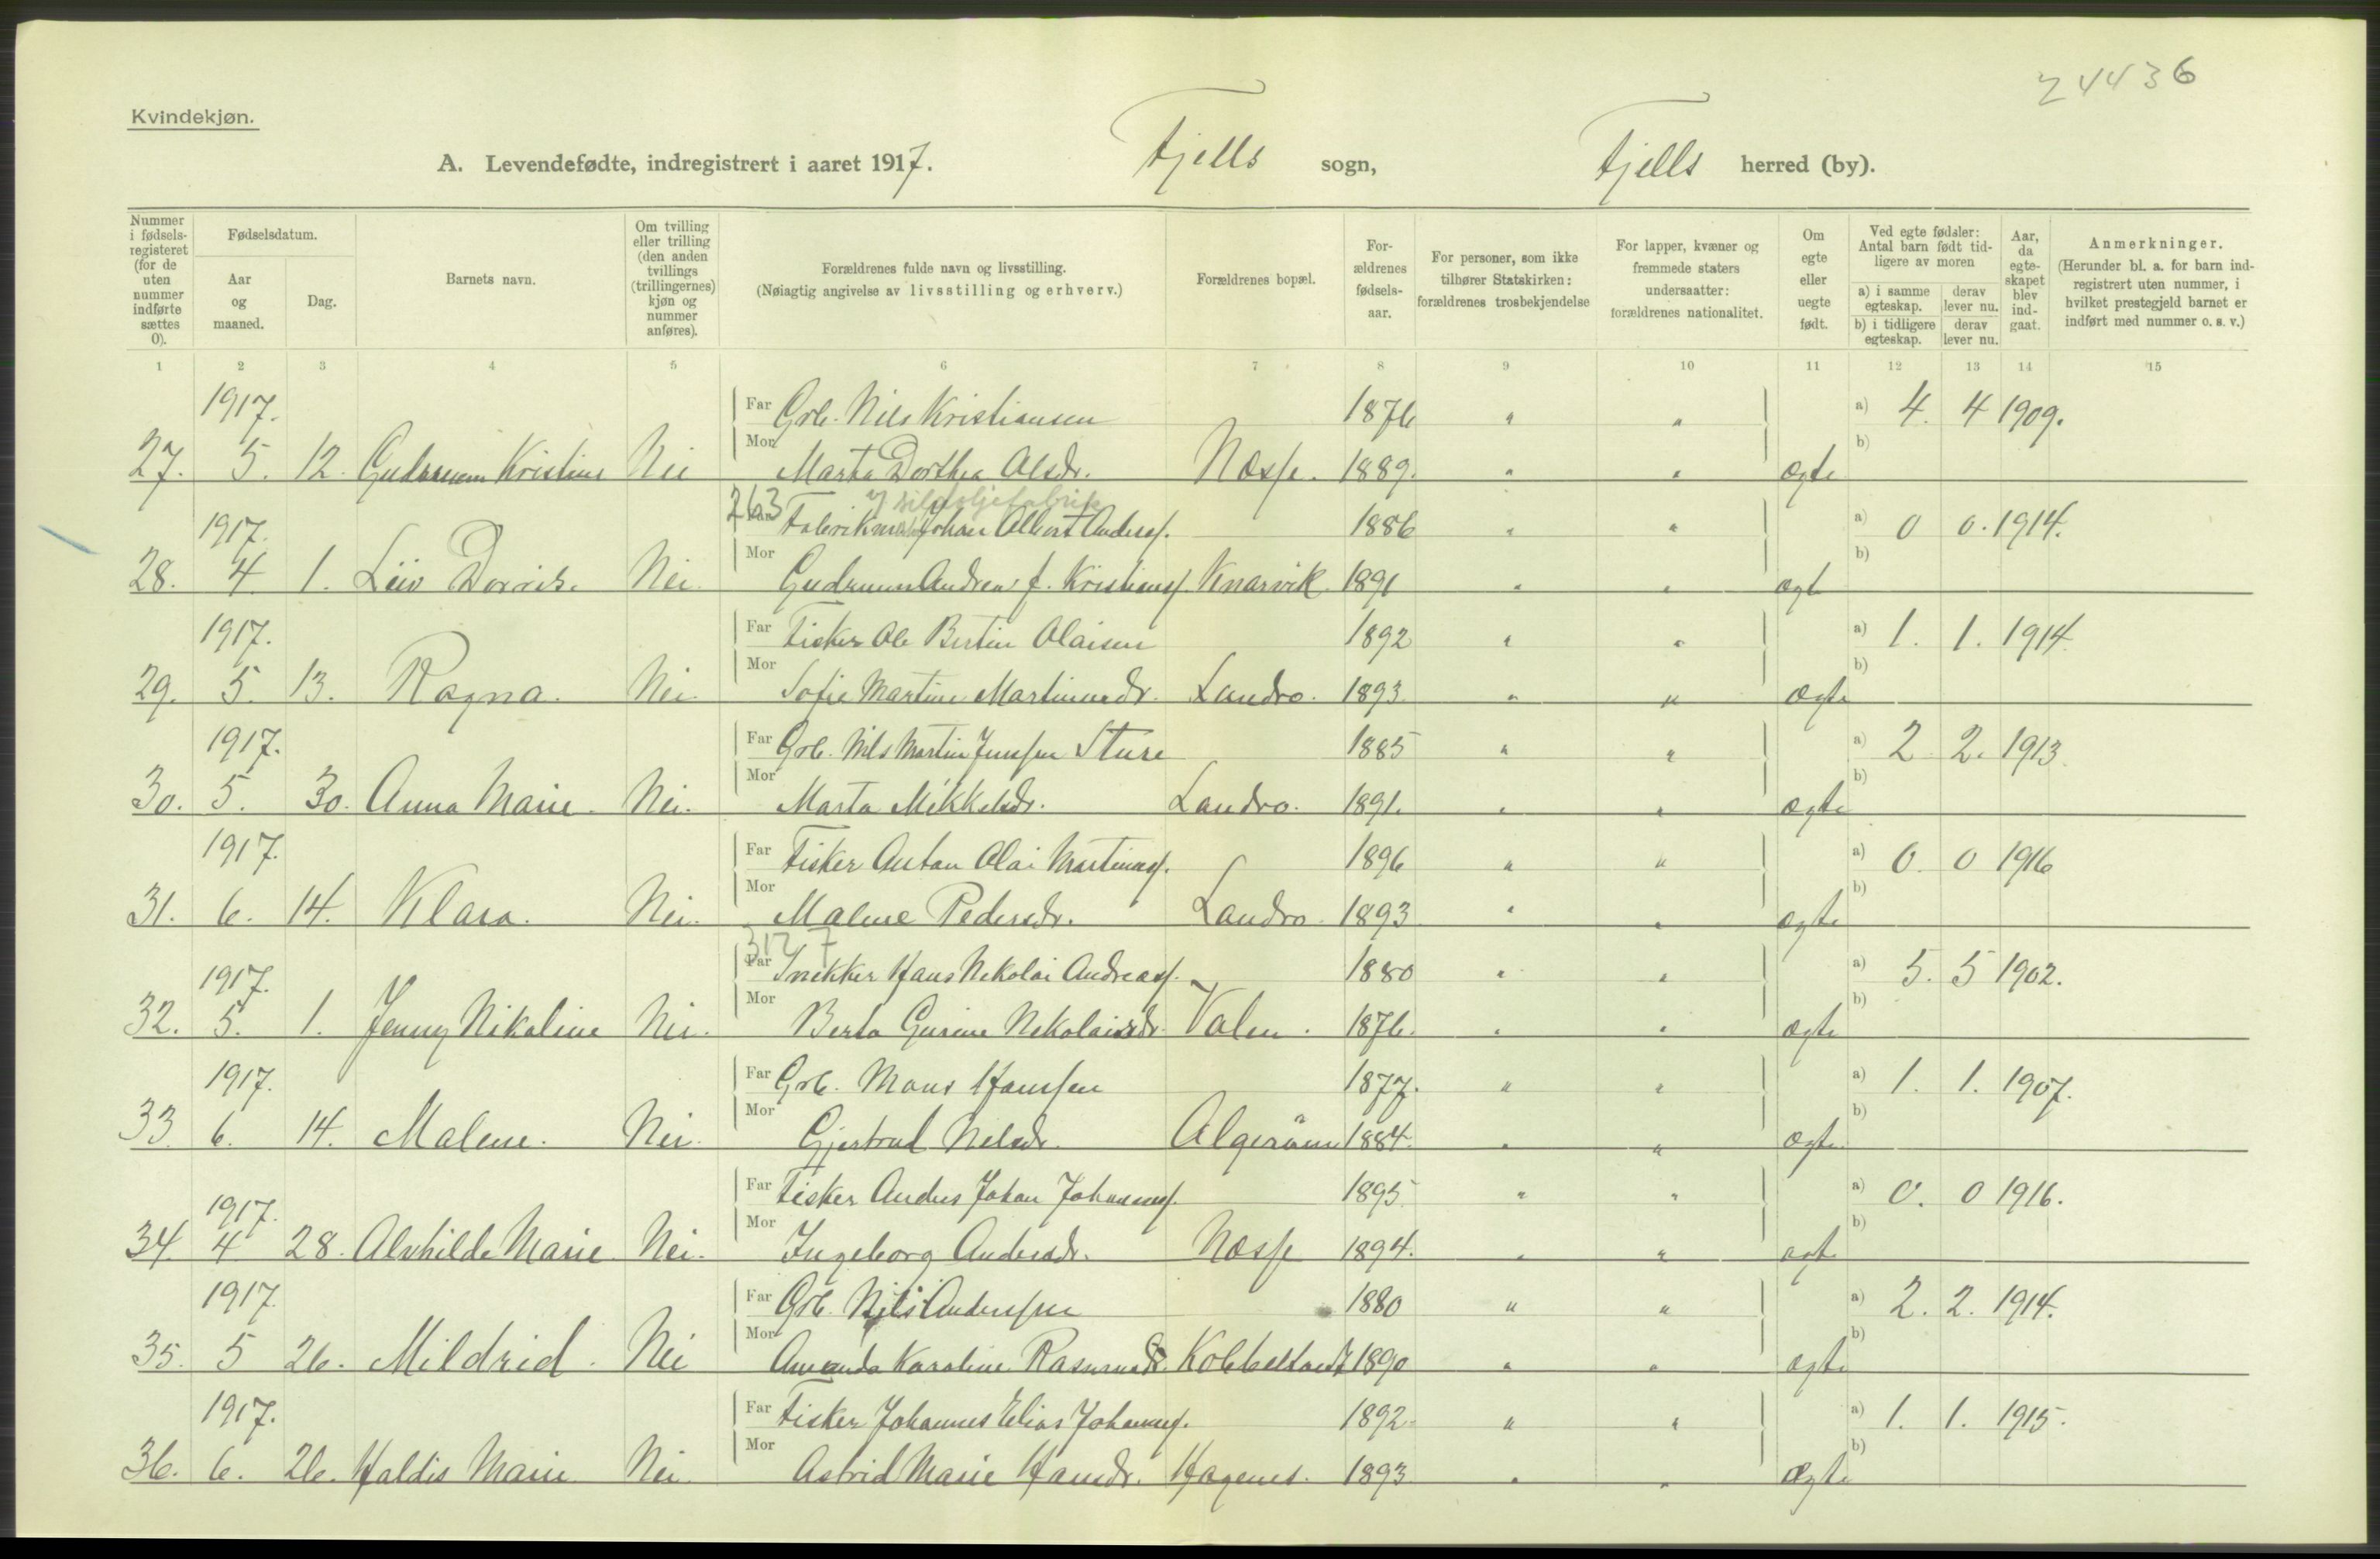 24436
Kvindekjøn.
A. Levendefødte, indregistrert i aaret 1917. Fjells sogn, Fjells herred (by).
Nummer i fødsels-registeret (for de uten nummer indførte sættes 0).
Fødselsdatum.
Aar og maaned.
Dag.
Barnets navn.
Om tvilling eller trilling (den anden tvillings (trillingernes) kjøn og nummer anføres).
Forældrenes fulde navn og livsstilling.
(Nøiagtig angivelse av livsstilling og erhverv.)
Forældrenes bopæl.
For-ældrenes fødsels-aar.
For personer, som ikke tilhører Statskirken: forældrenes trosbekjendelse
For lapper, kvæner og fremmede staters undersaatter: forældrenes nationalitet.
Om egte eller uegte født.
Ved egte fødsler: Antal barn født tid-ligere av moren
a) i samme egteskap.
derav lever nu.
b) i tidligere egteskap.
derav lever nu.
Aar, da egte-skapet blev ind-gaat.
Anmerkninger.
(Herunder bl. a. for barn ind-registrert uten nummer, i hvilket prestegjeld barnet er indført med nummer o. s. v.)
1 2 3 4 5 6 7 8 9 10 11 12 13 14 15
1917. Far Grb. Nils Kristiansen 1876 " " a) 4. 4 1909.
27. 5. 12. Gudrunn Kristine Nei Mor Marta Dorthea Olsdr. Næsse. 1889. " " ægte b)
263 sildoljefabrik
1917. Far Johan Albert Anders. 1886 " " a) 0 0. 1914.
28. 4 1. Liiv Dorris. Nei. Mor Gudrunn Andrea f. Kristians. Knarvik. 1891 " " ægt b)
1917. Far Fisker Ole Bertin Olaisen 1892 " " a) 1. 1. 1914.
29. 5. 13. Ragna. Nei. Mor Sofie Martine Martinusdr. Landro. 1893. " " Ægte b)
1917. Far Grb. Nils Martin Jensen Sture 1885 " " a) 2 2. 1913.
30. 5. 30. Anna Marie. Nei. Mor Marta Mikkelsdr. Landro. 1891. " " ægte b)
1917. Far Fisker Anton Olai Martinus. 1896 " " a) 0. 0 1916
31. 6. 14. Klara. Nei. Mor Malene Pedersdr. Landro. 1893 " " ægte b)
312 7
1917. Far Snekker Hans Nikolai Andreas. 1880 " " a) 5. 5 1902.
32. 5. 1. Jenny Nikoline Nei. Mor Berta Gurine Nikolaisdr. Valen. 1876. " " ægte b)
1917. Far Grb. Mons Hanssen 1877. " " a) 1. 1. 1907.
33. 6. 14. Malene. Nei. Mor Gjertrud Nilsdr. Algerøen 1884. " " ægte b)
1917. Far Fisker Anders Johan Johannes. 1895 " " a) 0. 0 1916.
34. 4 28. Alvhilde Marie Nei. Mor Ingeborg Andersdr. Næsse 1894. " " ægt b)
1917. Far Grb. Nils Anderssen 1880 " " a) 2. 2. 1914.
35. 5 26. Mildrid. Nei Mor Amanda Karoline Rasmusdr. Kobbeltvedt 1890 " " ægte b)
1917. Far Fisker Johannes Elias Johannes. 1892. " " a) 1. 1. 1915.
36. 6. 26. Haldis Marie Nei Mor Astrid Marie Hansdr. Hagenes. 1893. " " Ægte b)